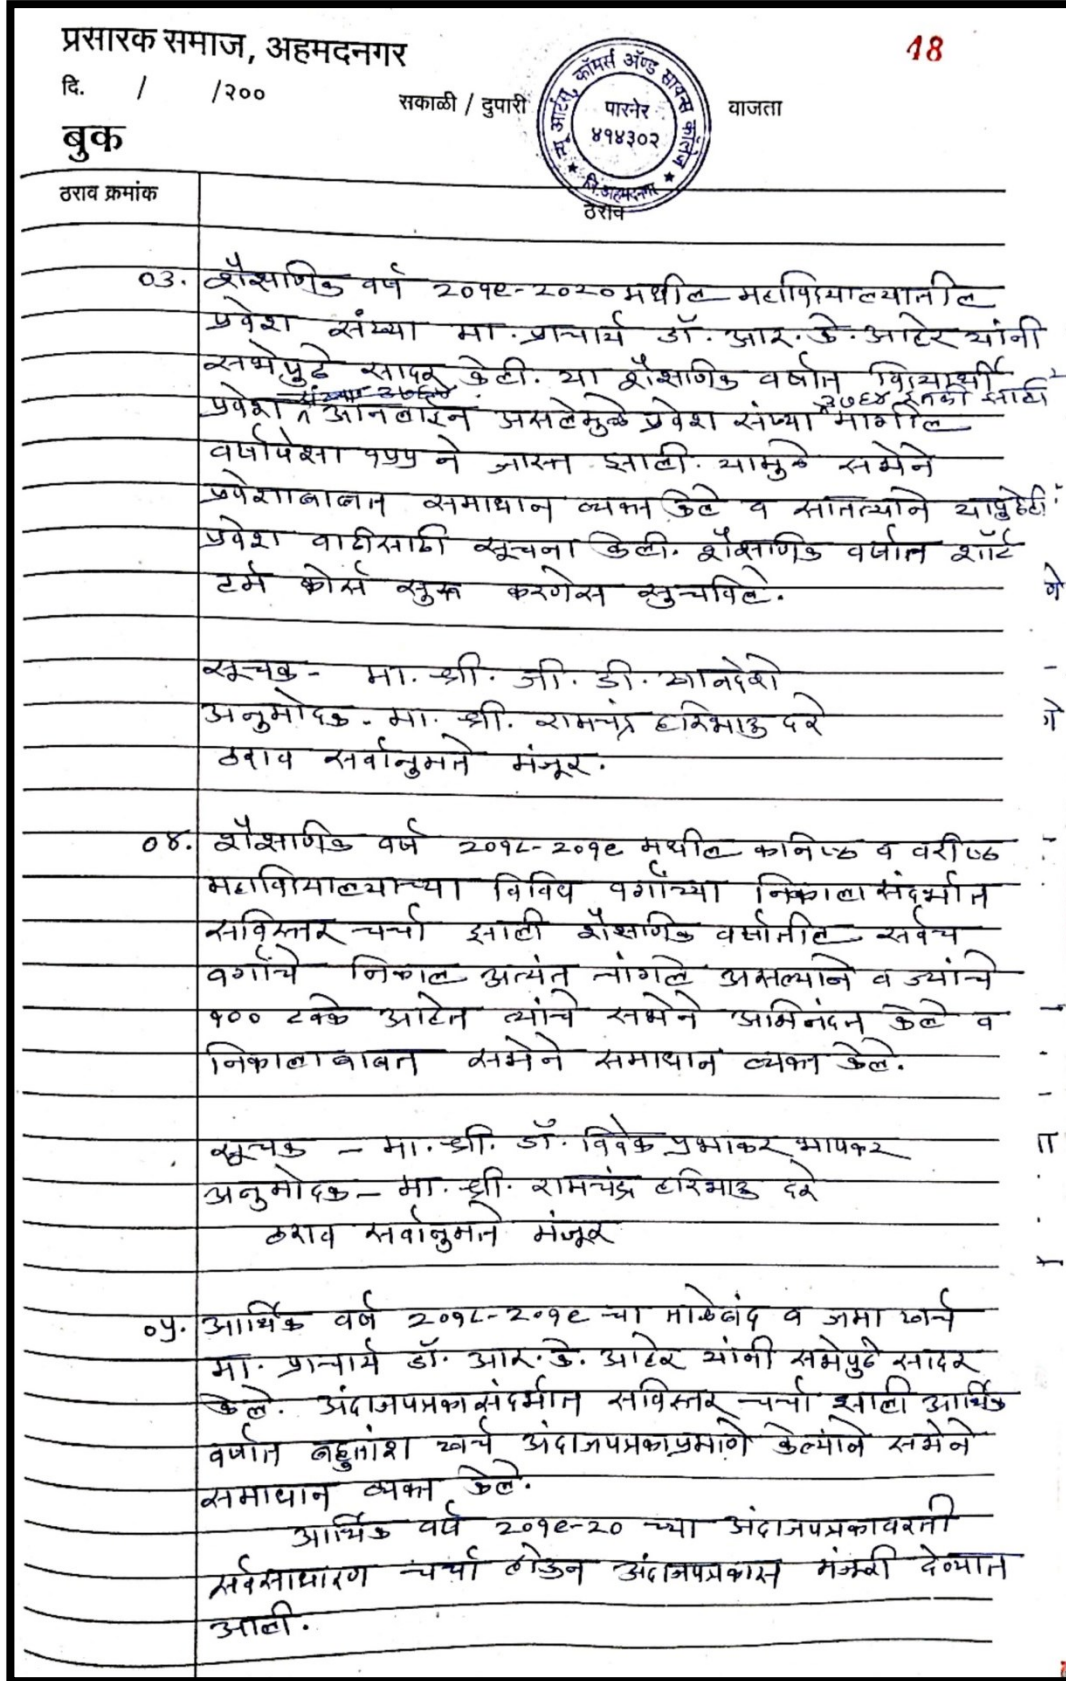 प्रसारक समाज, अहमदनगर
18
दि. / /२००
सकाळी / दुपारी
वाजता
न्यू आर्टस्, कॉमर्स ॲण्ड सायन्स कॉलेज
पारनेर
४१४३०२
जि.अहमदनगर
बुक
ठराव क्रमांक
ठराव
०३. शैक्षणिक वर्ष २०१९-२०२० मधील महाविद्यालयातील
प्रवेश संख्या मा. प्राचार्य डॉ. आर. के. आहेर यांनी
सभेपुढे सादर केली. या शैक्षणिक वर्षात विद्यार्थी
२७६४ इतकी झाली
प्रवेश ऑनलाईन असलेमुळे प्रवेश संख्या मागील
वर्षापेक्षा १५५ ने जास्त झाली. यामुळे सभेने
प्रवेशाबाबत समाधान व्यक्त केले व सातत्याने यापुढेही
प्रवेश वाढीसाठी सूचना केली. शैक्षणिक वर्षात शॉर्ट
टर्म कोर्स सुरू करणेस सुचविले.
सूचक - मा. श्री. जी. डी. खानदेशे
अनुमोदक - मा. श्री. रामचंद्र हरिभाऊ दरे
ठराव सर्वानुमते मंजूर.
०४. शैक्षणिक वर्ष २०१८-२०१९ मधील कनिष्ठ व वरीष्ठ
महाविद्यालयाच्या विविध वर्गाच्या निकाला संदर्भात
सविस्तर चर्चा झाली शैक्षणिक वर्षातील सर्वच
वर्गाचे निकाल अत्यंत चांगले असल्याने व ज्यांचे
१०० टक्के आहेत त्यांचे सभेने अभिनंदन केले व
निकालाबाबत सभेने समाधान व्यक्त केले.
सूचक - मा. श्री. डॉ. विवेक प्रभाकर भापकर
अनुमोदक - मा. श्री. रामचंद्र हरिभाऊ दरे
ठराव सर्वानुमते मंजूर
०५. आर्थिक वर्ष २०१८-२०१९ चा ताळेबंद व जमा खर्च
मा. प्राचार्य डॉ. आर. के. आहेर यांनी सभेपुढे सादर
केले. अंदाजपत्रका संदर्भात सविस्तर चर्चा झाली आर्थिक
वर्षात बहुतांश खर्च अंदाजपत्रकाप्रमाणे केल्याने सभेने
समाधान व्यक्त केले.
आर्थिक वर्ष २०१९-२० च्या अंदाजपत्रकावरती
सर्वसाधारण चर्चा होऊन अंदाजपत्रकास मंजूरी देण्यात
आली.